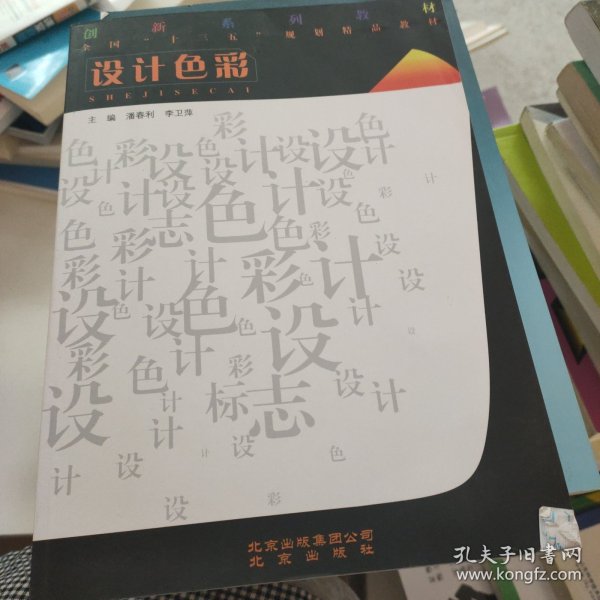 创新系列教材
全国“十三五”规划精品教材
设计色彩
SHEJISECAI
主编 潘春利 李卫萍
彩 色
色 彩 设 色 计 设 设 计
设 计 计 设 设 色 计 彩 计
色 志 色 色 彩 色
色 彩 计 彩 计 设 设
彩 计 色
设 色 设 色 色 设 计 设
彩 色 计 彩 设 计
设 计 标 志 计
计 设 计 设 色
设 彩
北京出版集团公司
北京出版社
孔夫子旧书网
www.kongfz.com